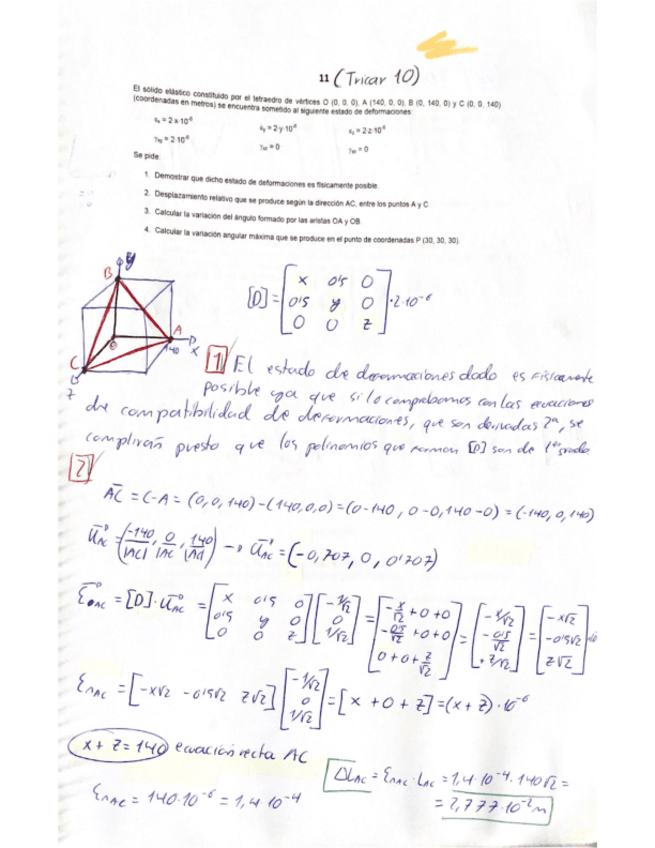 11 (Tricar 10)
El sólido elástico constituido por el tetraedro de vértices O (0, 0, 0), A (140, 0, 0), B (0, 140, 0) y C (0, 0, 140)
(coordenadas en metros) se encuentra sometido al siguiente estado de deformaciones:
εx = 2 x·10⁻⁶ εy = 2·y·10⁻⁶ εz = 2·z·10⁻⁶
γxy = 2·10⁻⁶ γxz = 0 γyz = 0
Se pide:
1. Demostrar que dicho estado de deformaciones es físicamente posible.
2. Desplazamiento relativo que se produce según la dirección AC, entre los puntos A y C
3. Calcular la variación del ángulo formado por las aristas OA y OB.
4. Calcular la variación angular máxima que se produce en el punto de coordenadas P (30, 30, 30)
B y
A
140 x
C
z
[D] = [x 0'5 0; 0'5 y 0; 0 0 z] · 2·10⁻⁶
1 El estado de deformaciones dado es físicamente
posible ya que si lo comprobamos con las ecuaciones
de compatibilidad de deformaciones, que son derivadas 2ª, se
cumplirán puesto que los polinomios que forman [D] son de 1er grado
2
AC = C-A = (0,0,140)-(140,0,0)=(0-140, 0-0, 140-0) = (-140, 0, 140)
U AC = (-140/|AC|, 0/|AC|, 140/|AC|) → U AC = (-0,707, 0, 0'707)
ε AC = [D]·U AC = [x 0'5 0; 0'5 y 0; 0 0 z] [-1/√2; 0; 1/√2] = [-x/√2 +0+0; -0'5/√2 +0+0; 0+0+z/√2] = [-x/√2; -0'5/√2; +z/√2] = [-x√2; -0'5√2; z√2]
ε nAC = [-x√2 -0'5√2 z√2] [-1/√2; 0; 1/√2] = [x +0 +z] = (x+z)·10⁻⁶
x + z = 140 ecuación recta AC
ε nAC = 140·10⁻⁶ = 1,4·10⁻⁴
ΔL AC = ε nAC · L AC = 1,4·10⁻⁴·140√2 =
= 2,777·10⁻² m